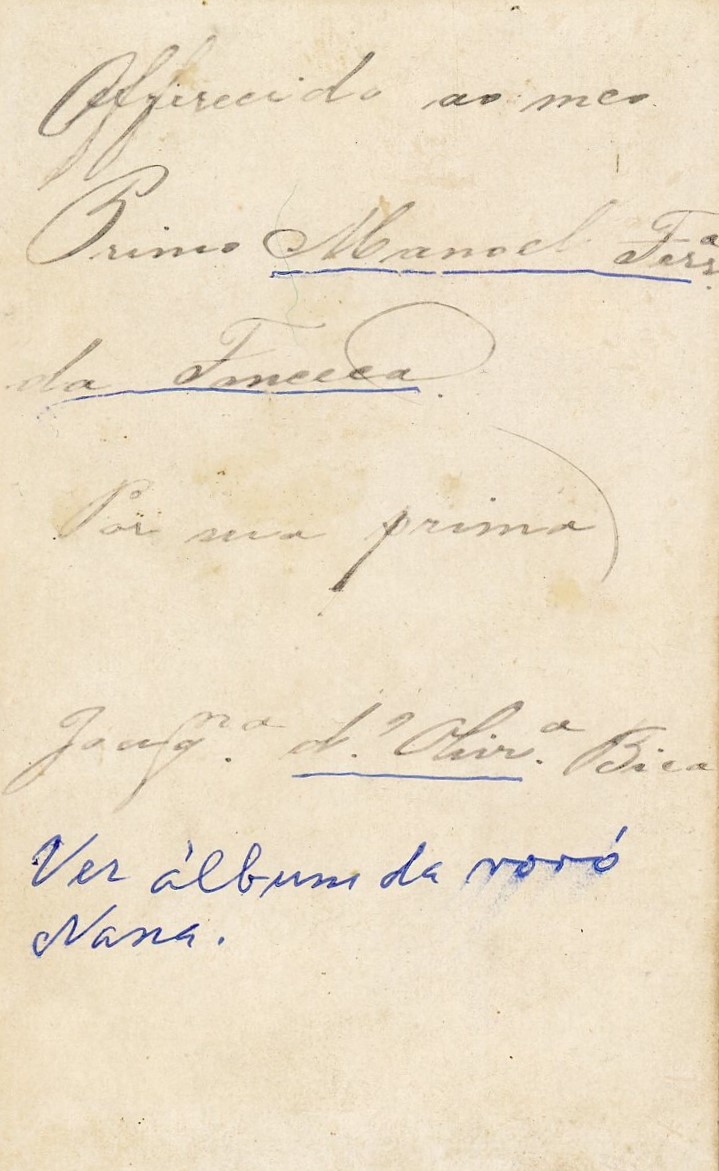 Offerecido ao meo
Primo Manoel Ferrª
da Fonceca.
Por sua prima
Joaqnª. d'Olivrª. Bica
Ver álbum da vovó
Nana.